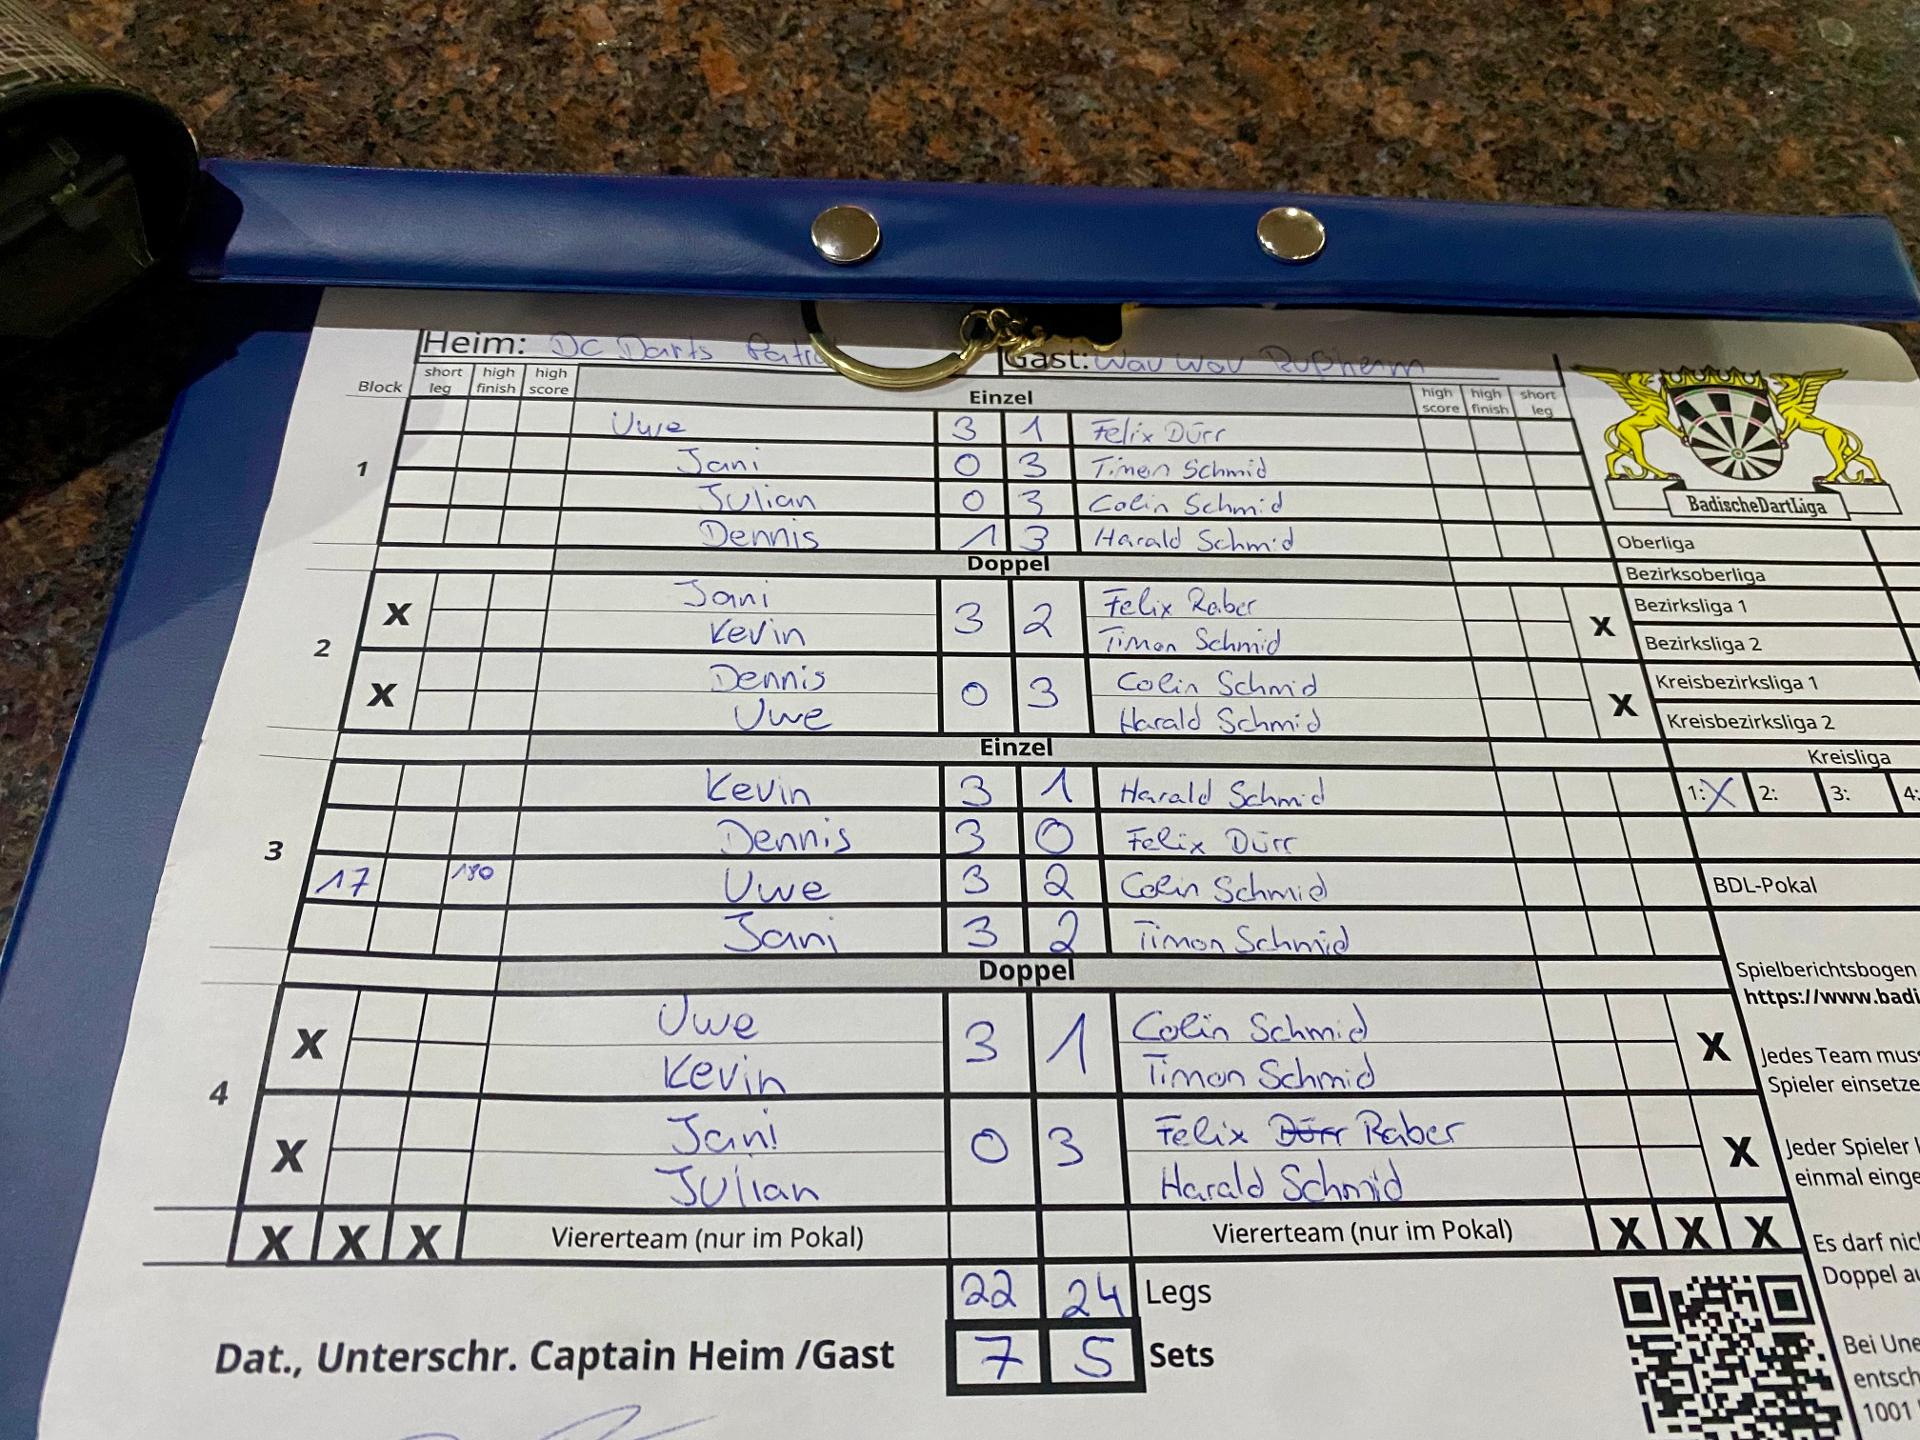 Heim: DC Darts Gast: Wau Wau Rußheim
Block short leg high finish high score Einzel high score high finish short leg
1
Uwe 3 1 Felix Dürr
Jani 0 3 Timon Schmid
Julian 0 3 Colin Schmid
Dennis 1 3 Harald Schmid
Doppel
2
X Jani 3 2 Felix Raber X
Kevin Timon Schmid
X Dennis 0 3 Colin Schmid X
Uwe Harald Schmid
Einzel
3
Kevin 3 1 Harald Schmid
Dennis 3 0 Felix Dürr
17 180 Uwe 3 2 Colin Schmid
Jani 3 2 Timon Schmid
Doppel
4
X Uwe 3 1 Colin Schmid X
Kevin Timon Schmid
X Jani 0 3 Felix Dürr Raber X
Julian Harald Schmid
X X X Viererteam (nur im Pokal) Viererteam (nur im Pokal) X X X
22 24 Legs
Dat., Unterschr. Captain Heim /Gast 7 5 Sets
BadischeDartLiga
Oberliga
Bezirksoberliga
Bezirksliga 1
Bezirksliga 2
Kreisbezirksliga 1
Kreisbezirksliga 2
Kreisliga
1: X 2: 3: 4:
BDL-Pokal
Spielberichtsbogen
https://www.badi
Jedes Team mus
Spieler einsetze
Jeder Spieler
einmal einge
Es darf nic
Doppel au
Bei Une
entsch
1001